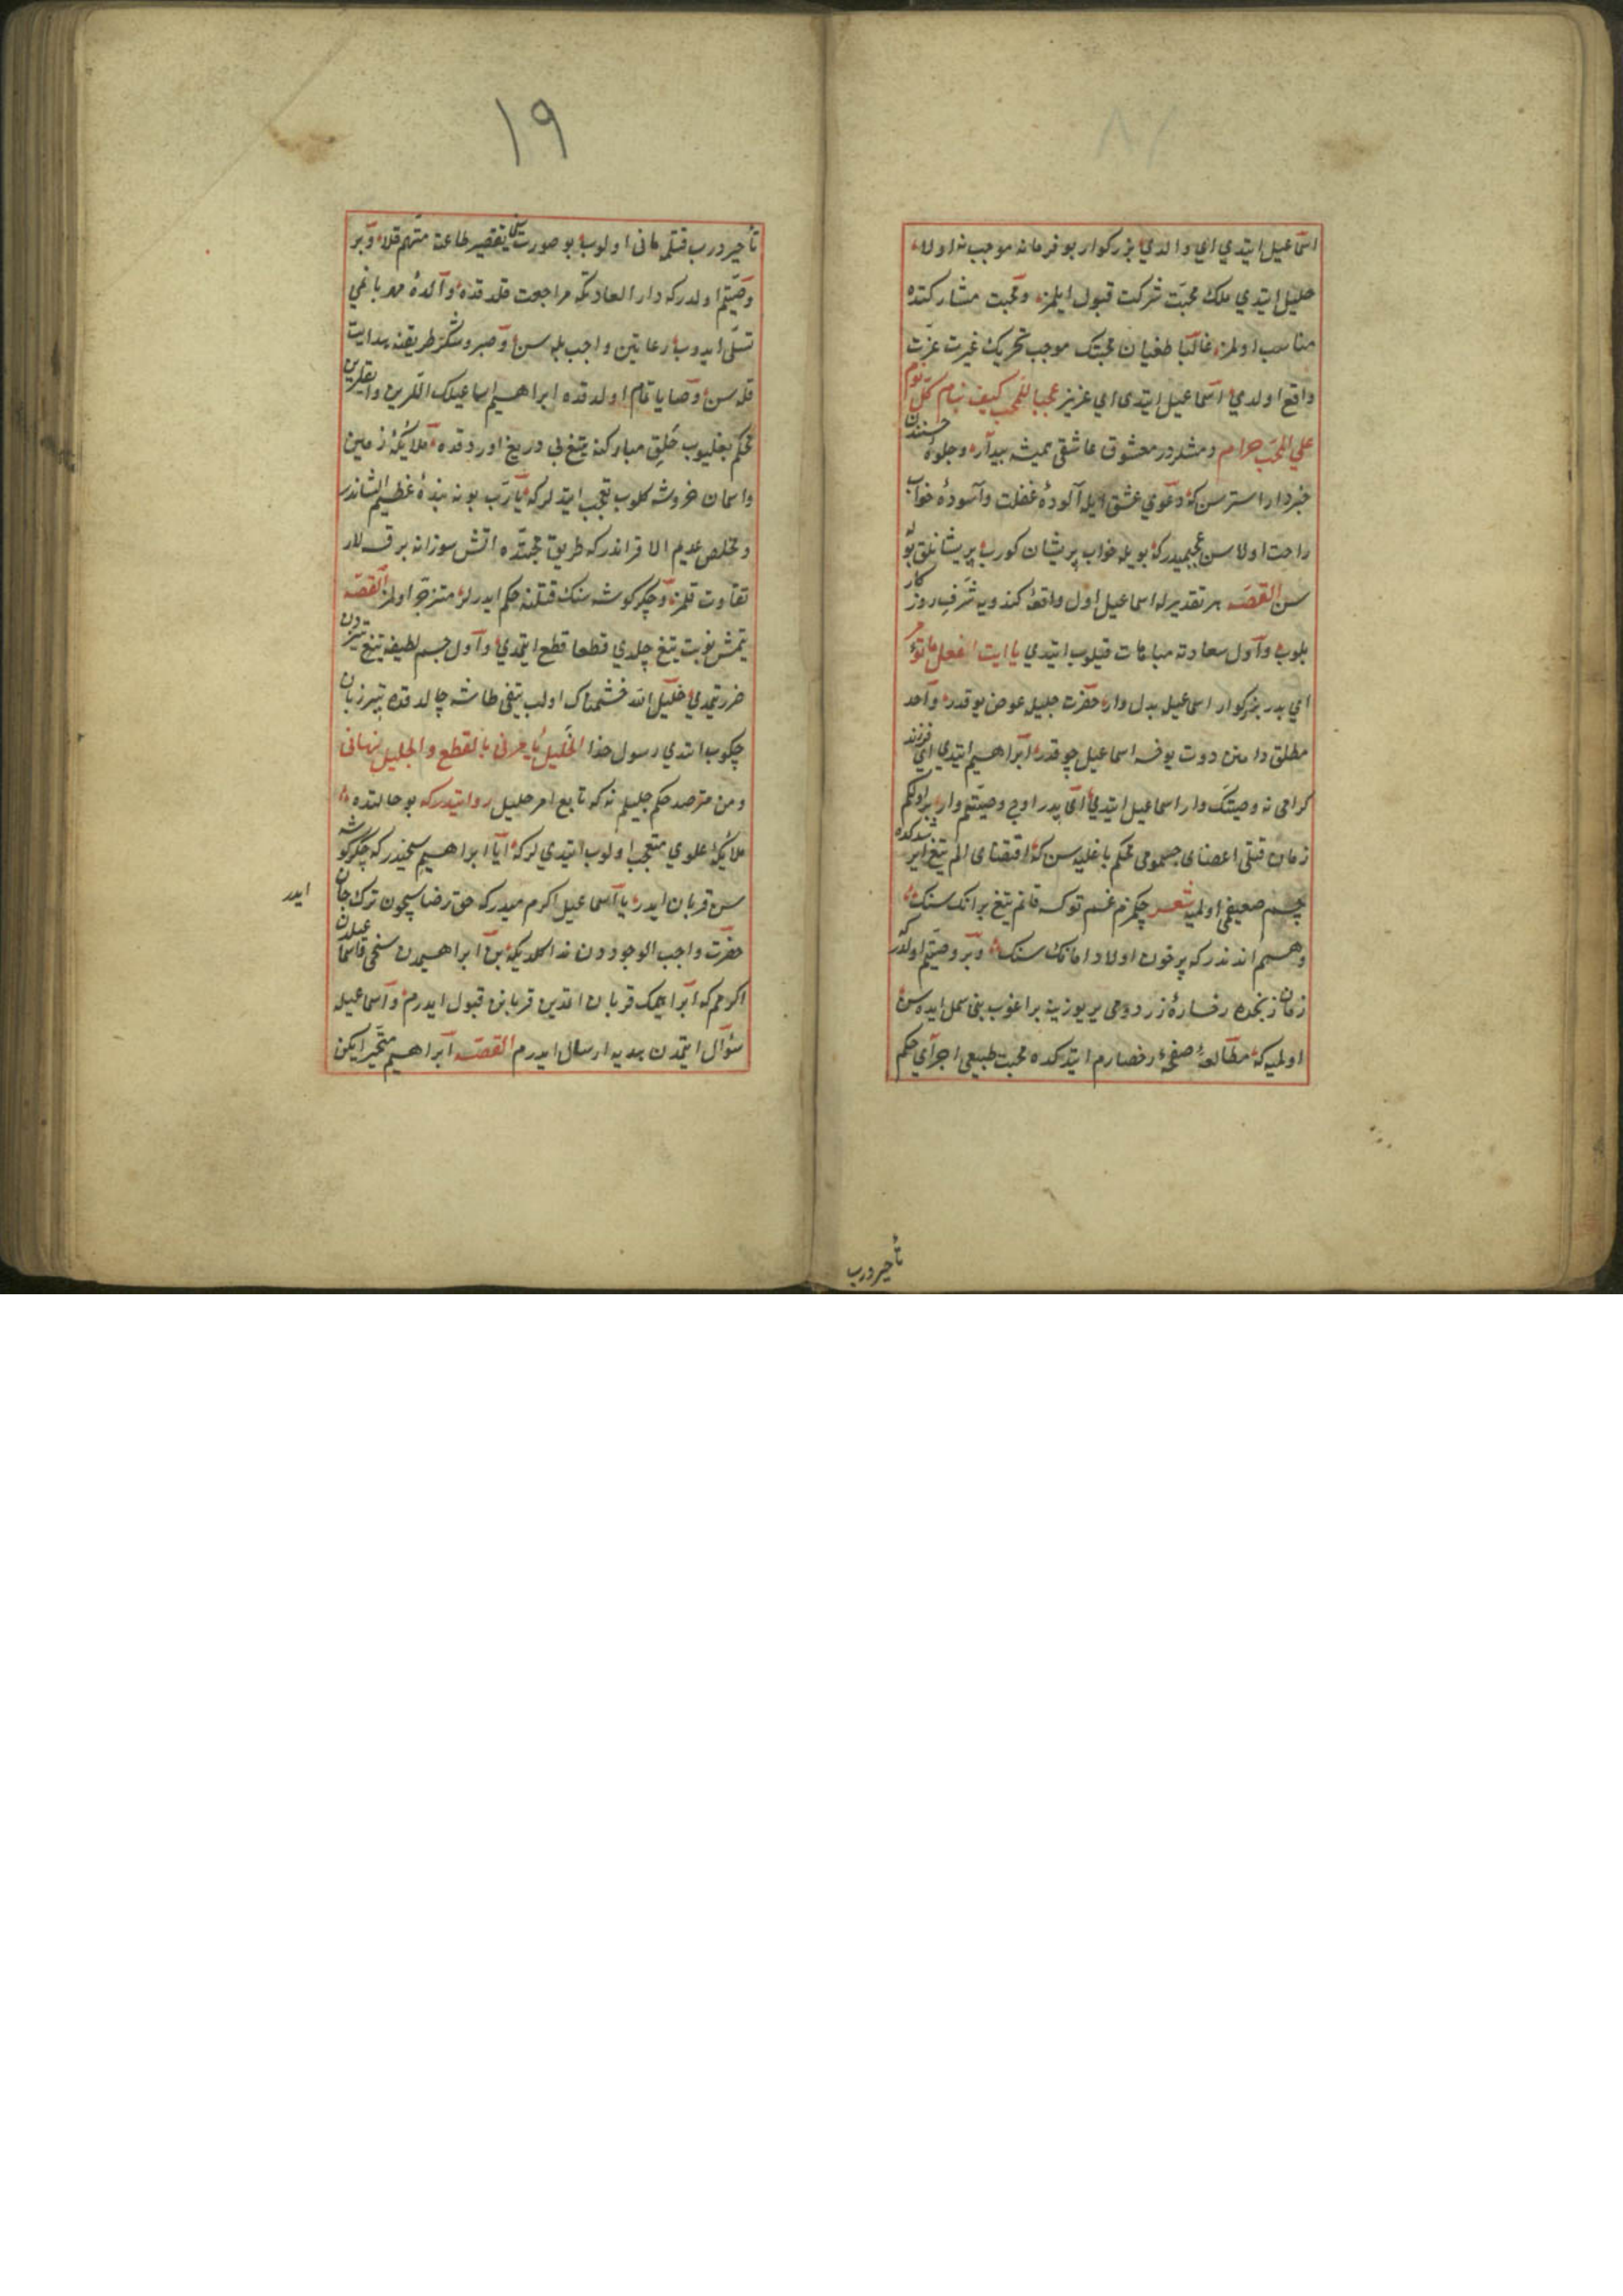 اسماعیل ایتدی ای والدی بزرکوار بو فرمانه موجب نه اولا
خلیل ایتدی ملک محبت شرکت قبول ایلمز و محبت مشارکتده
مناسب اولمز غالبا طغیان محبتک موجب تحریک غیرت عزت
واقع اولدی اسماعیل ایتدی ای عزیز عجبا للمحب کیف ینام کل نوم
علی المحب حرام و مشلدر معشوق عاشقی همیشه بیدار و جلوهٔ حسنندن
خبردار استر سن که دعوی عشق ایله آلودهٔ غفلت و آسودهٔ خواب
راحت اولاسن عجبمیدر که بویله خواب پریشان کورب پریشانلق بو
سن القصه هر تقدیرله اسماعیل اول واقعهٔ کندویه شرف روز کار
بلوب و اول سعادته مباهات قیلوب ایتدی یا ابت افعل ما تؤمر
ای پدر بزرکوار اسماعیل بدل وار حضرت جلیل عوض یوقدر واحد
مطلق دامنن دوت یوخسه اسماعیل چوقدر ابراهیم ایتدی ای فرزند
کرامی نه وصیتک وار اسماعیل ایتدی ای پدر اوچ وصیتم وار بر اولکم
زمان قتلی اعضنای جسمومی محکم باغلیه سن که اقتضای الم تیغ ایر شدکده
جسم ضعیفی اولمیه شعر چکمزم غم توکسه قانم تیغ برانک سنک
وهمم اندندر که پرخون اولا دامانک سنک و بر وصیتم اولدر که
زمان زنجده رخسارهٔ زردومی یر یوزینه براغوب بنی بسمل ایده سن
اولمیه که مطالعهٔ صفحهٔ رخصارم ایتدکده محبت طبیعی اجرای حکم
تأخیر درب
١٩
تأخیر درب قتلم مانی اولوب بو صورت سنی تقصیر طاعته متهم قلا و بر
وصیتم اولدر که دار العادتکه مراجعت قلدقده والدهٔ مهربانمی
تسلی ایدوب رعایتین واجب بله سن و صبر و شکر طریقنه هدایت
قله سن وصایا تمام اولدقده ابراهیم اسماعیلک اللرین و ایقلرین
محکم بغلیوب حلق مبارکنه تیغ بی دریغ اوردقده ملایکهٔ زمین
و اسمان خروشه کلوب تعجب ایتدلر که یا رب بو نه بندهٔ عظیم الشاندر
و مخلص عدیم الاقراندر که طریق محبتده اتش سوزانه برق لار
تفاوت قلمز و جکر کوشه سنک قتلنه حکم ایدرلر متزجر اولمز القصه
یتمش نوبت تیغ چلدی قطعا قطع ایتمدی و اول جسم لطیفه تیغ تیزدن
ضرر یتمدی خلیل الله خشمناک اولب تیغی طاشه چالدقده تیر زبان
چکوب ایتدی رسول خدا الخلیل یأمرنی بالقطع و الجلیل ینهانی
و من مترصد حکم جلیلم نه که تابع امر خلیل روایتدر که بو حالتده
ملایکهٔ علوی متعجب اولوب ایتدی لر که آیا ابراهیم سخیدر که جکر کوشه
سن قربان ایدر یا اسماعیل اکرم میدر که حق رضاسیچون ترک جان
ایدر
حضرت واجب الوجوددن ندا کلدیکه بن ابراهیمدن سخی و اسماعیلدن
اکرمم که ابراهیمک قربان التدین قربانن قبول ایدرم و اسماعیله
سؤال ایتمدن هدیه ارسال ایدرم القصه ابراهیم متحیر ایکن